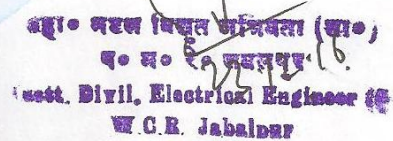 सहा० मंडल विद्युत अभियंता (सा०)
प० म० रे० जबलपुर
Asstt. Divil. Electrical Engineer (G
W.C.R. Jabalpur